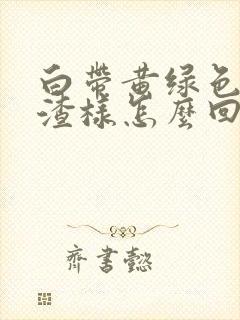 白带黄绿色
渣样怎麼回
齐书懿